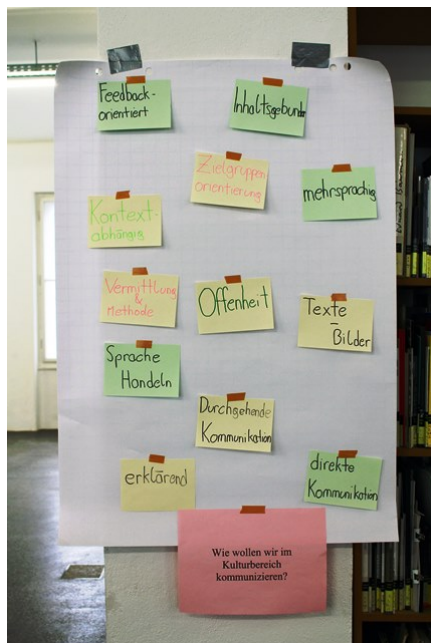 Feedback-
orientiert
Inhaltsgebunden
Zielgruppen
orientierung
mehrsprachig
Kontext-
abhängig
Vermittlung
&
Methode
Offenheit
Texte
–
Bilder
Sprache
Handeln
Durchgehende
Kommunikation
erklärend
direkte
Kommunikation
Wie wollen wir im
Kulturbereich
kommunizieren?